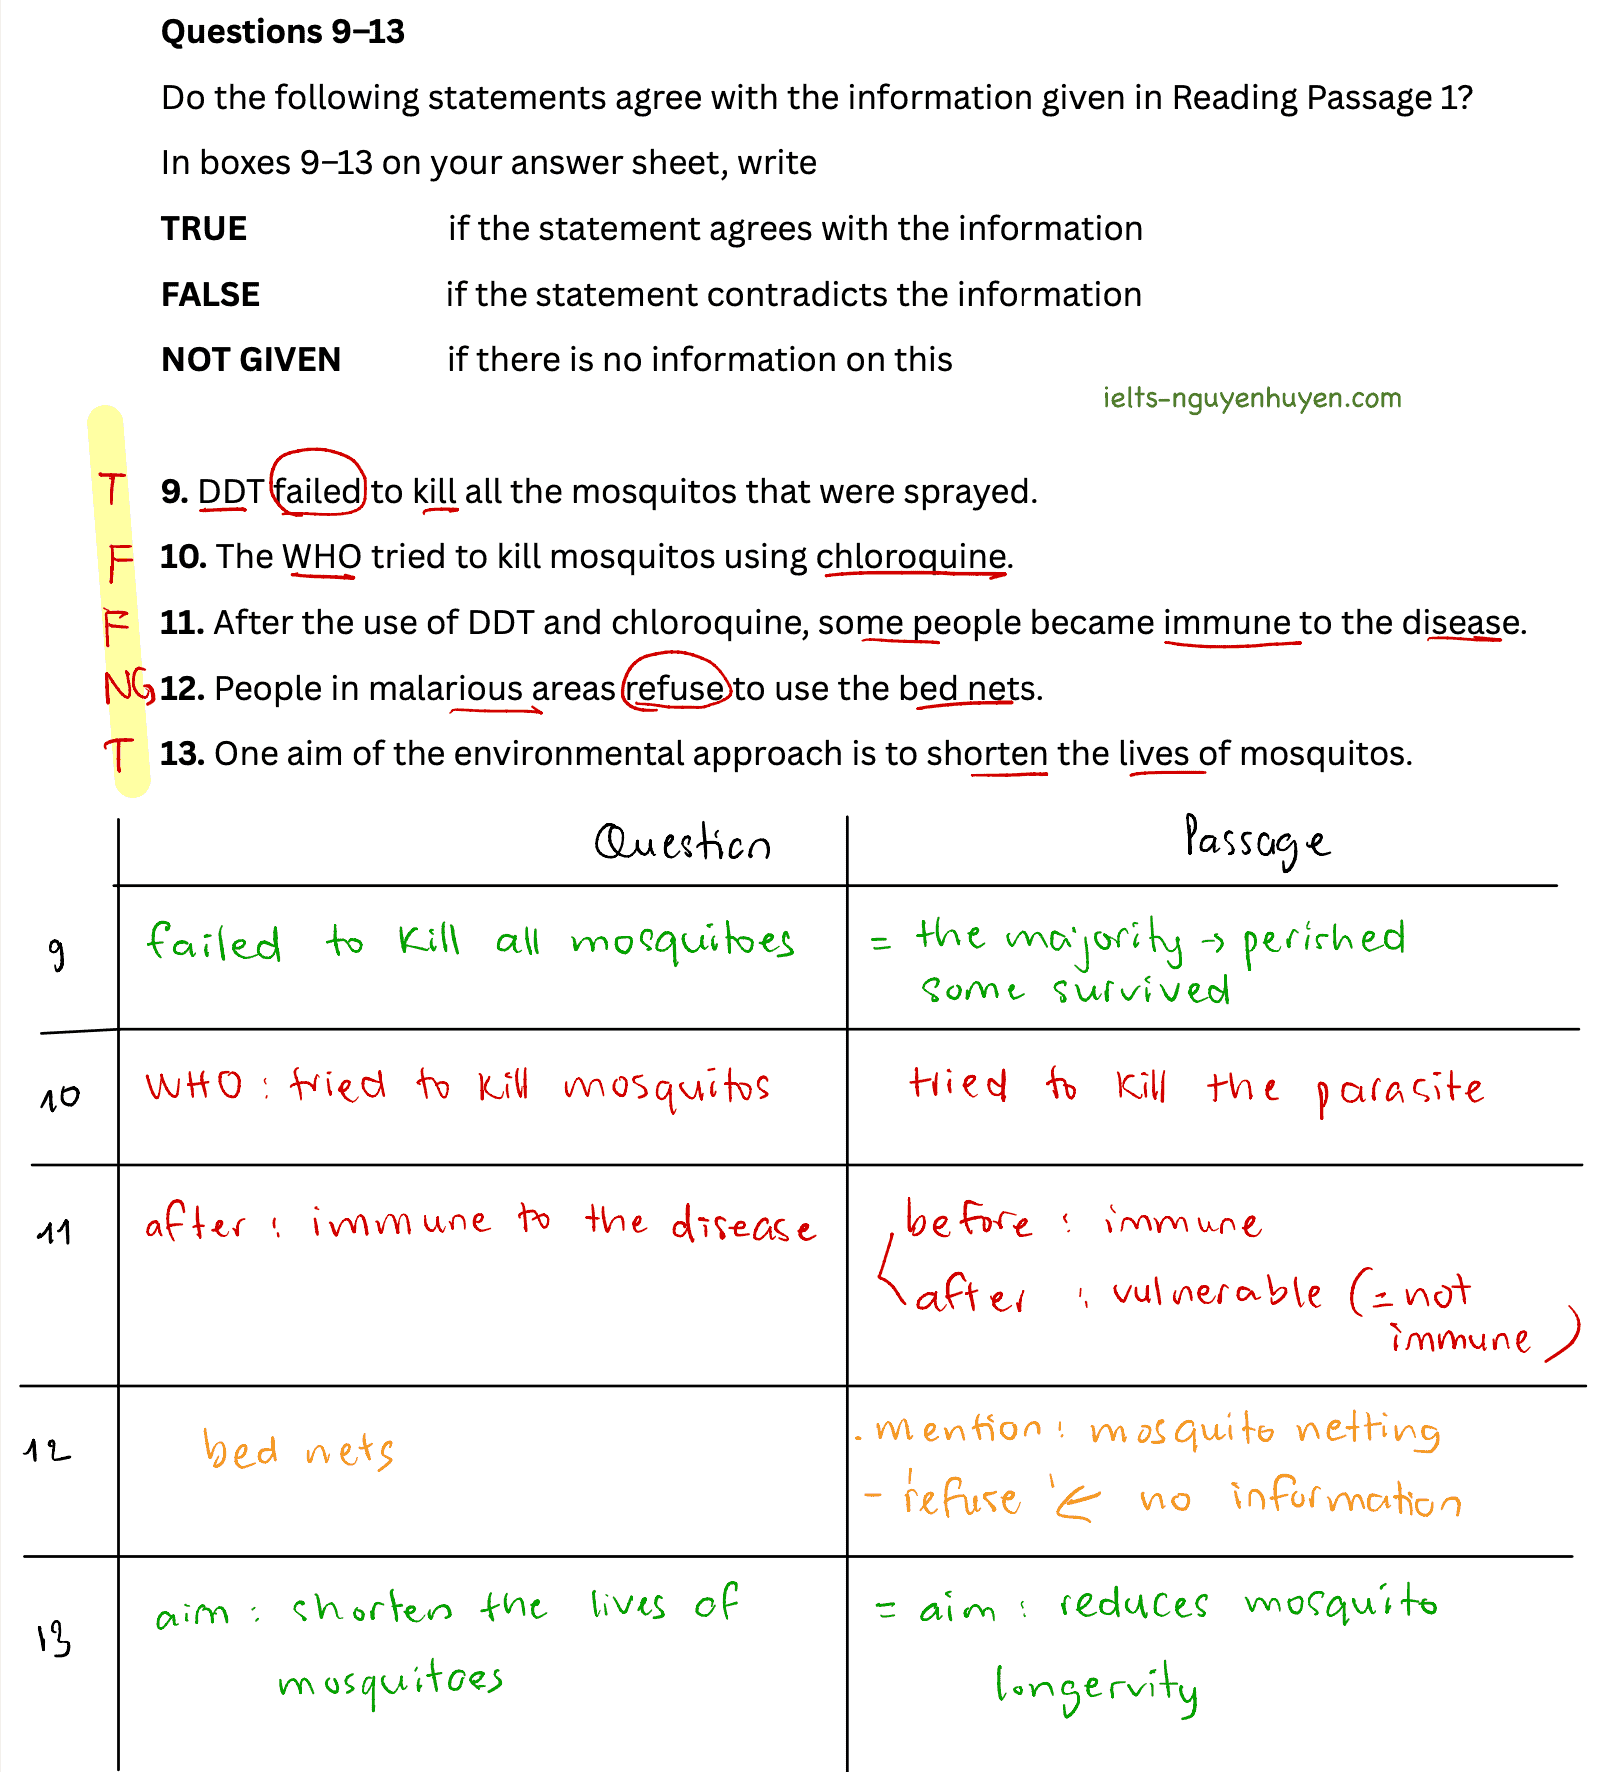 Questions 9–13
Do the following statements agree with the information given in Reading Passage 1?
In boxes 9–13 on your answer sheet, write
TRUE if the statement agrees with the information
FALSE if the statement contradicts the information
NOT GIVEN if there is no information on this
ielts-nguyenhuyen.com
T 9. DDT failed to kill all the mosquitos that were sprayed.
F 10. The WHO tried to kill mosquitos using chloroquine.
F 11. After the use of DDT and chloroquine, some people became immune to the disease.
NG 12. People in malarious areas refuse to use the bed nets.
T 13. One aim of the environmental approach is to shorten the lives of mosquitos.
Question Passage
9 failed to kill all mosquitoes = the majority → perished
some survived
10 WHO : tried to kill mosquitos tried to kill the parasite
11 after : immune to the disease before : immune
after : vulnerable (= not
immune)
12 bed nets . mention : mosquito netting
- 'refuse' ← no information
13 aim : shorten the lives of = aim : reduces mosquito
mosquitoes longervity